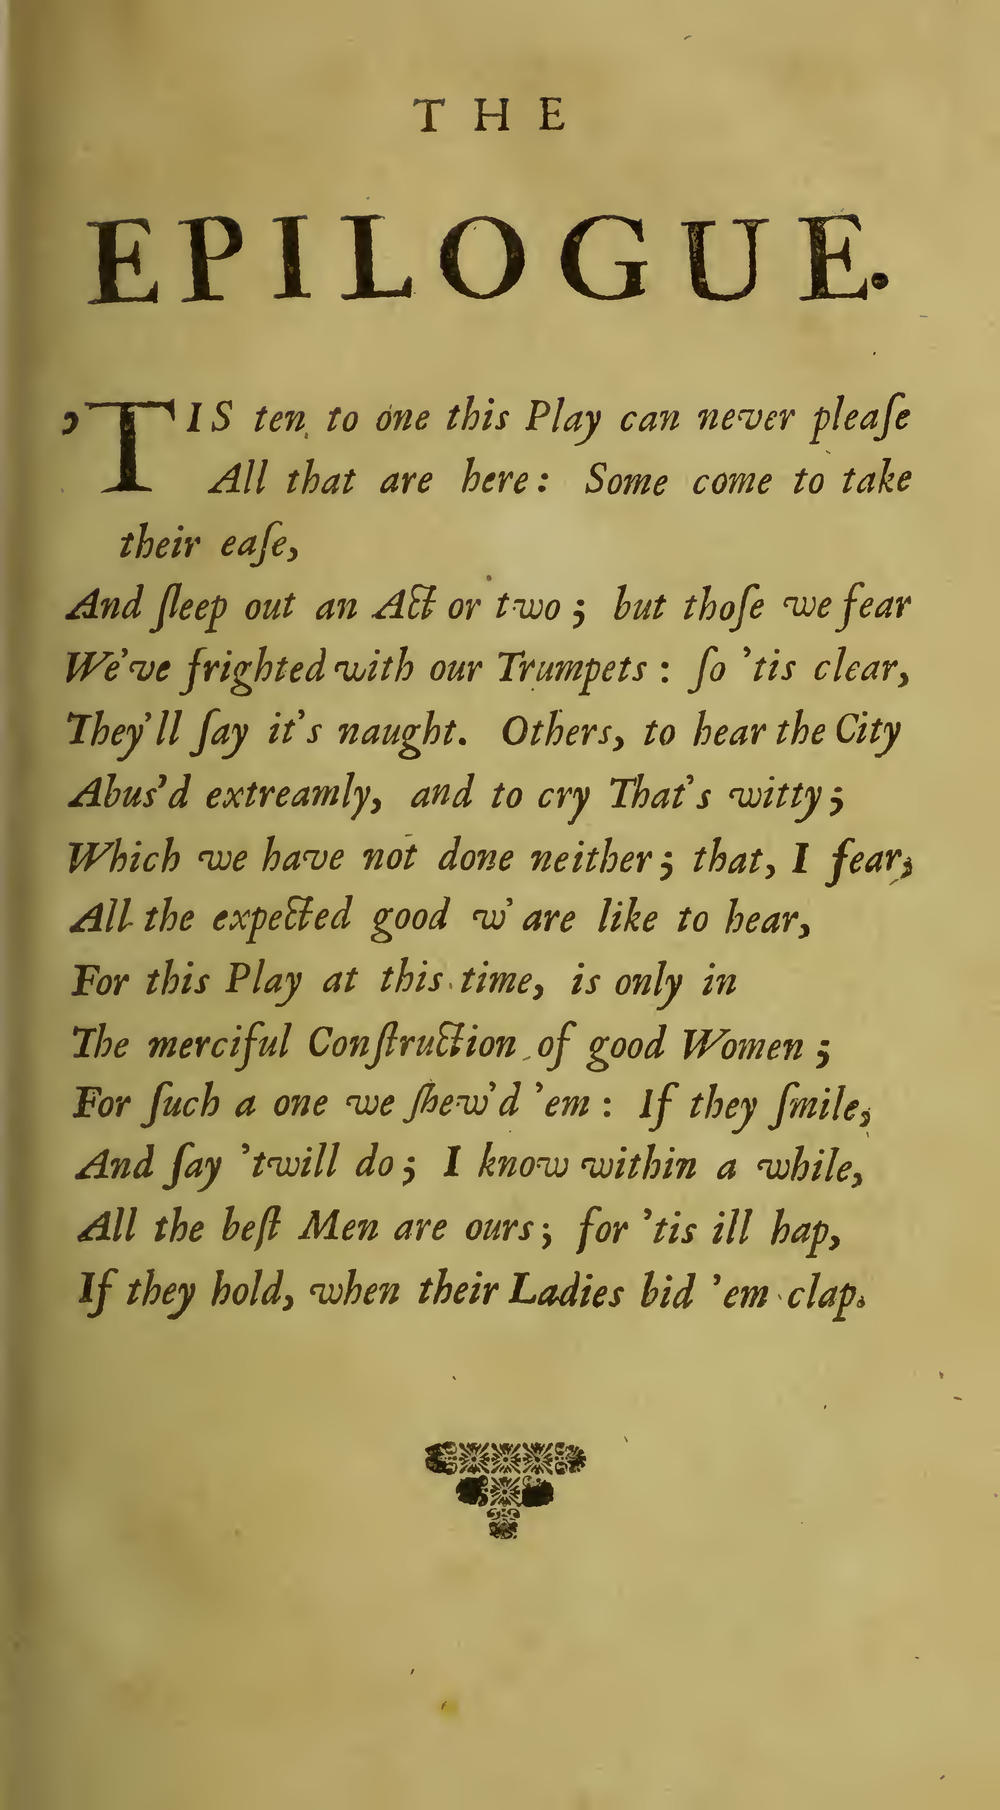 THE
EPILOGUE.
'TIS ten to one this Play can never pleaſe
All that are here: Some come to take
their eaſe,
And ſleep out an Act or two; but thoſe we fear
We've frighted with our Trumpets: ſo 'tis clear,
They'll ſay it's naught. Others, to hear the City
Abus'd extreamly, and to cry That's witty;
Which we have not done neither; that, I fear,
All the expected good w' are like to hear,
For this Play at this time, is only in
The merciful Conſtruction of good Women;
For ſuch a one we ſhew'd 'em: If they ſmile,
And ſay 'twill do; I know within a while,
All the beſt Men are ours; for 'tis ill hap,
If they hold, when their Ladies bid 'em clap.